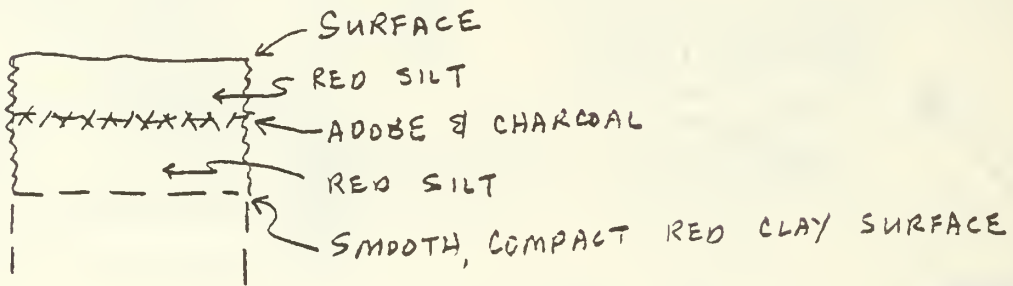 SURFACE
RED SILT
ADOBE & CHARCOAL
RED SILT
SMOOTH, COMPACT RED CLAY SURFACE